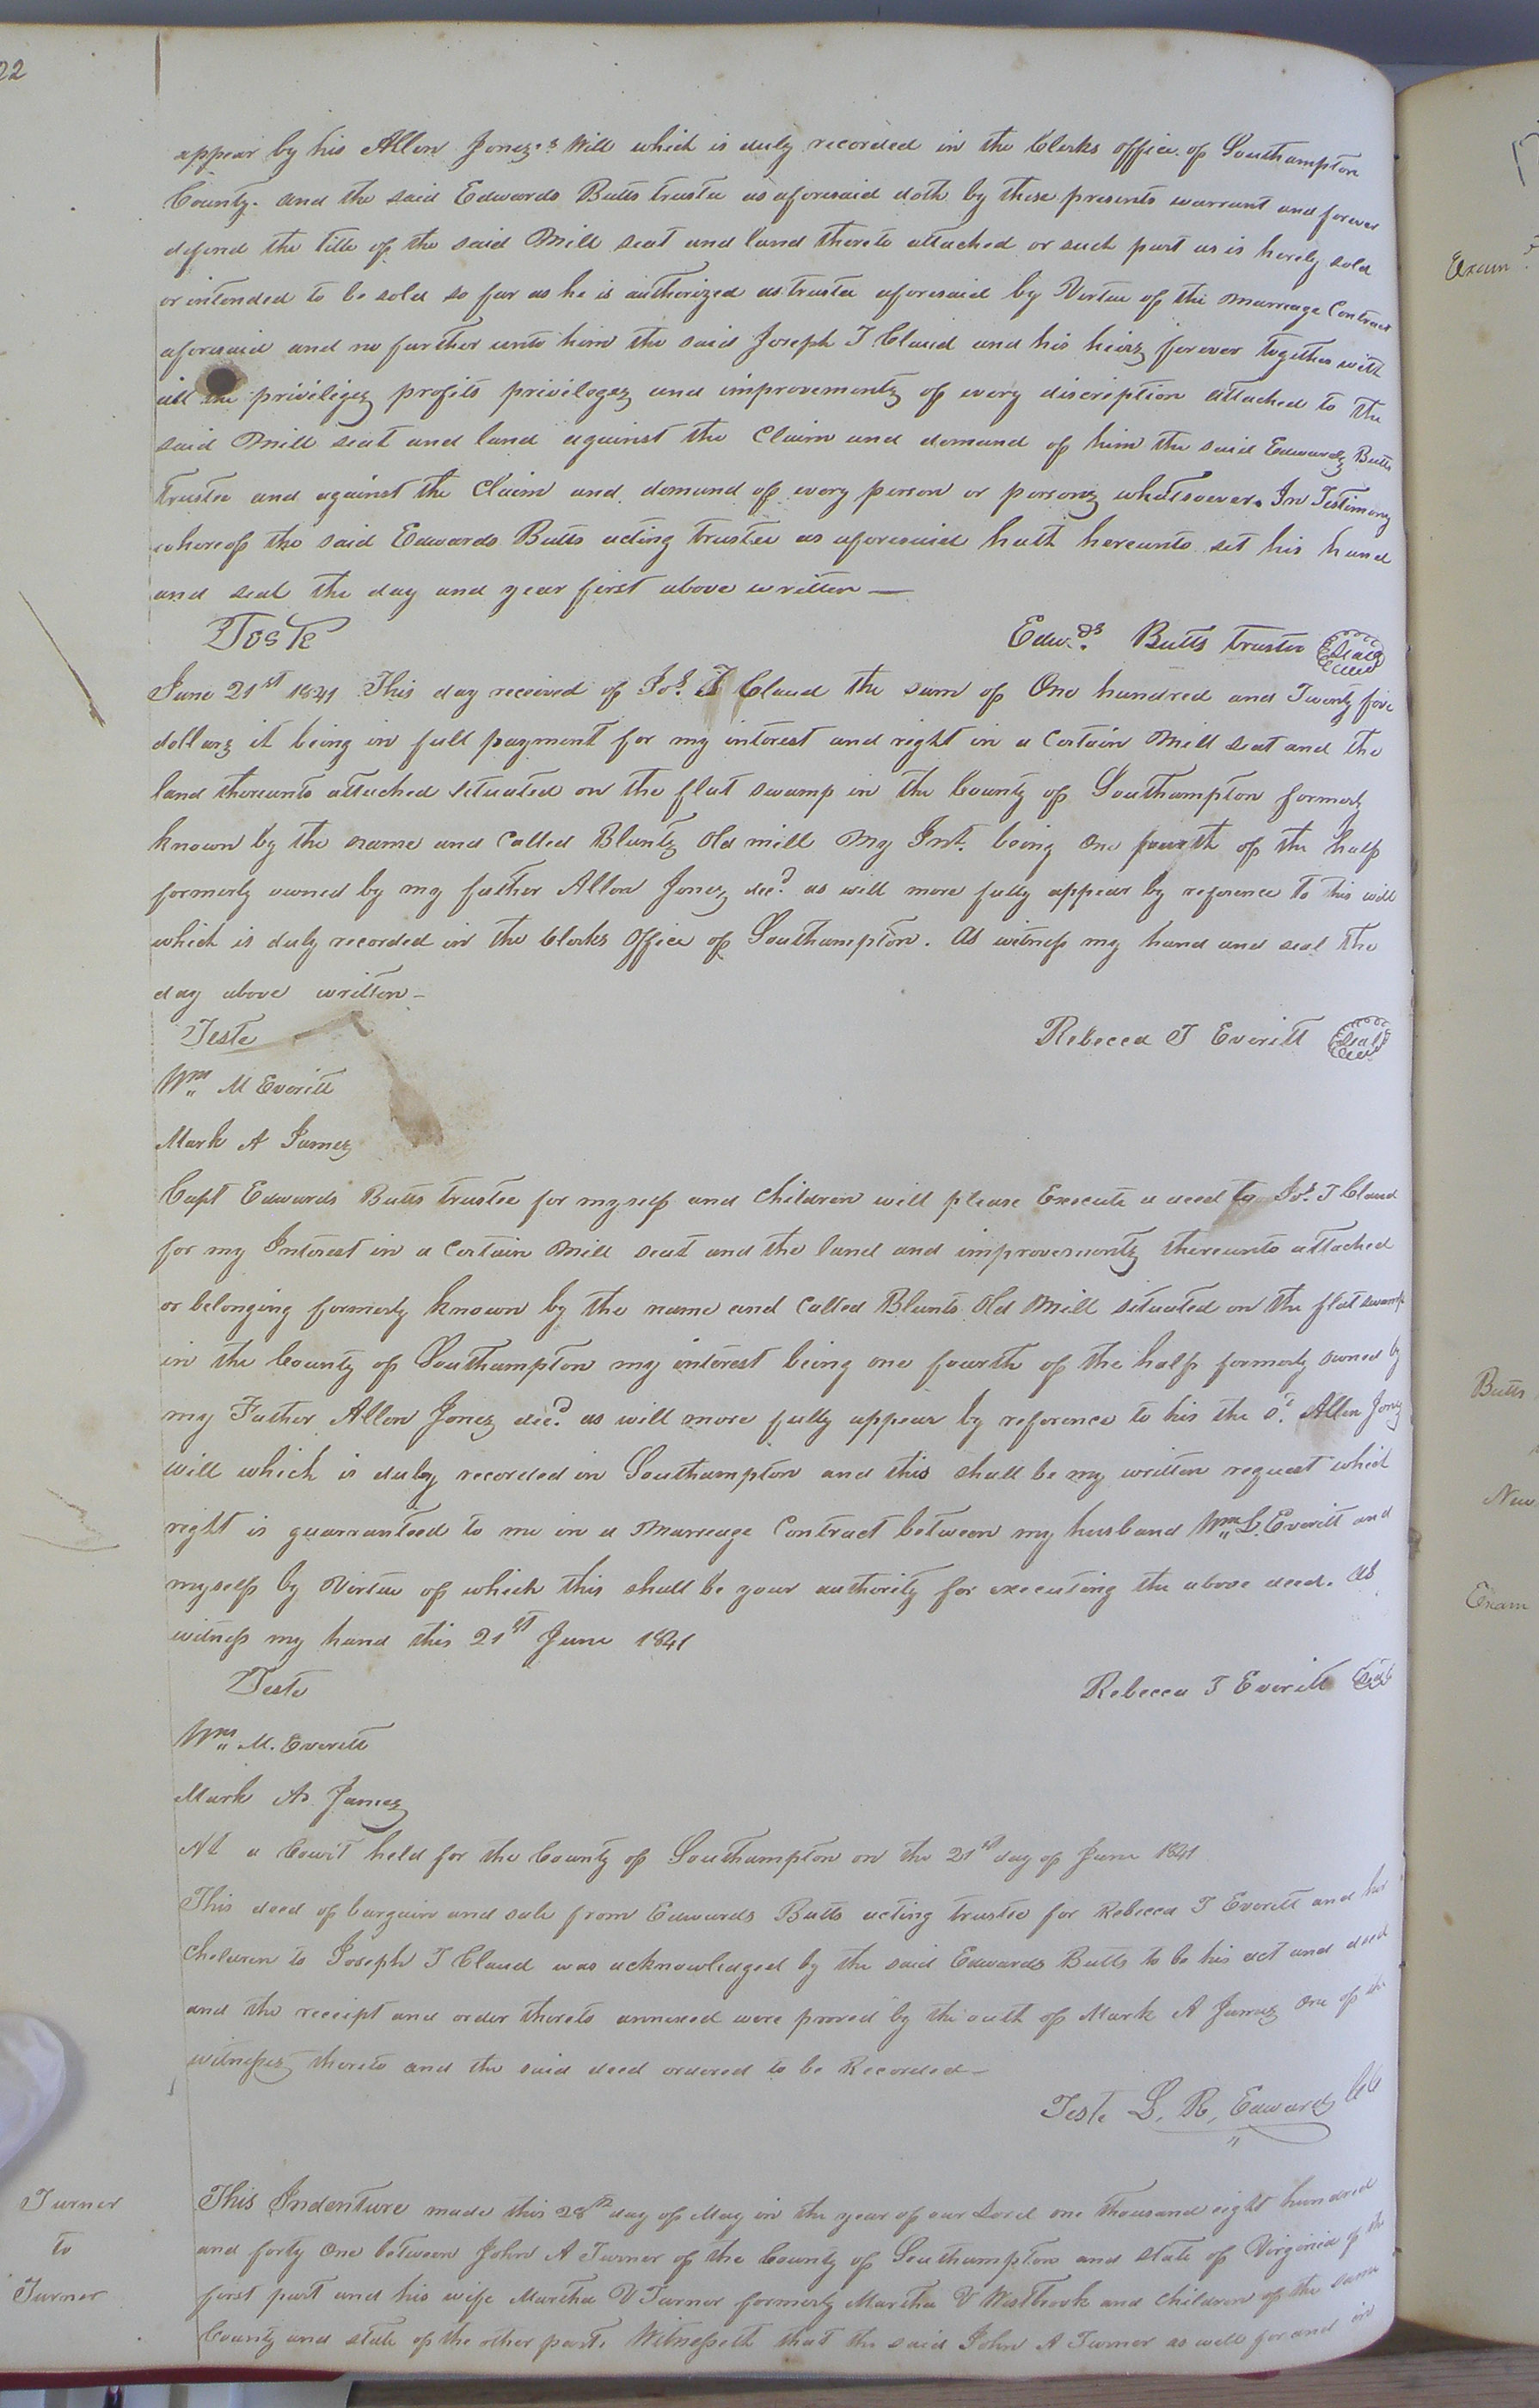 22
appear by his Allen Jones's Will which is duly recorded in the Clerks office of Southampton
County. and the said Edwards Butts trustee as aforesaid doth by these presents warrant and forever
defend the title of the said Mill seat and land thereto attached or such part as is hereby sold
or intended to be sold so far as he is authorized as trustee aforesaid by Virtue of the marreage Contract
aforesaid and no further unto him the said Joseph T Claud and his heirs forever together with
all the priviliges profits privileges and improvements of every discription attached to the
said Mill seat and land against the Claim and demand of him the said Edwards Butts
trustee and against the Claim and demand of every person or persons whatsoever. In Testimony
whereof the said Edwards Butts acting trustee as aforesaid hath hereunto set his hand
and seal the day and year first above written —
Teste
Edwds. Butts trustee Seal
June 21st 1841 This day received of Jos. T Claud the sum of One hundred and Twenty five
dollars it being in full payment for my interest and right in a Certain Mill seat and the
land thereunto attached situated on the flat swamp in the County of Southampton formerly
known by the name and Called Blunts Old mill My Int. being One fourth of the half
formerly owned by my father Allen Jones decd. as will more fully appear by reference to his will
which is duly recorded in the Clerks Office of Southampton. As witness my hand and seal the
day above written —
Teste
Rebecca T Everitt Seal
Wm M Everitt
Mark A James
Capt Edwards Butts trustee for myself and Children will please Execute a deed to Jos. T Claud
for my Interest in a Certain Mill seat and the land and improvements thereunto attached
or belonging formerly known by the name and Called Blunts Old Mill situated on the flat swamp
in the County of Southampton my interest being one fourth of the half formerly owned by
my Father Allen Jones decd. as will more fully appear by reference to his the sd. Allen Jones
will which is duly recorded in Southampton and this shall be my written request which
right is guarranteed to me in a Marreage Contract between my husband Wm L. Everitt and
myself by Virtue of which this shall be your authority for executing the above deed. As
witness my hand this 21st June 1841
Teste
Rebecca T Everitt Seal
Wm M. Everitt
Mark A. James
At a Court held for the County of Southampton on the 21st day of June 1841
This deed of bargain and sale from Edwards Butts acting trustee for Rebecca T Everitt and her
Children to Joseph T Claud was acknowledged by the said Edwards Butts to be his act and deed
and the receipt and order thereto annexed were proved by the oath of Mark A James One of the
witnesses thereto and the said deed ordered to be Recorded —
Teste L. R. Edwards CC
Turner
to
Turner
This Indenture made this 28th day of May in the year of our Lord one thousand eight hundred
and forty One between John A Turner of the County of Southampton and state of Virginia of the
first part and his wife Martha V Turner formerly Martha V Westbrook and children of the same
County and state of the other part. Witnesseth that the said John A Turner as well for and in
Exam
Butts
New
Exam